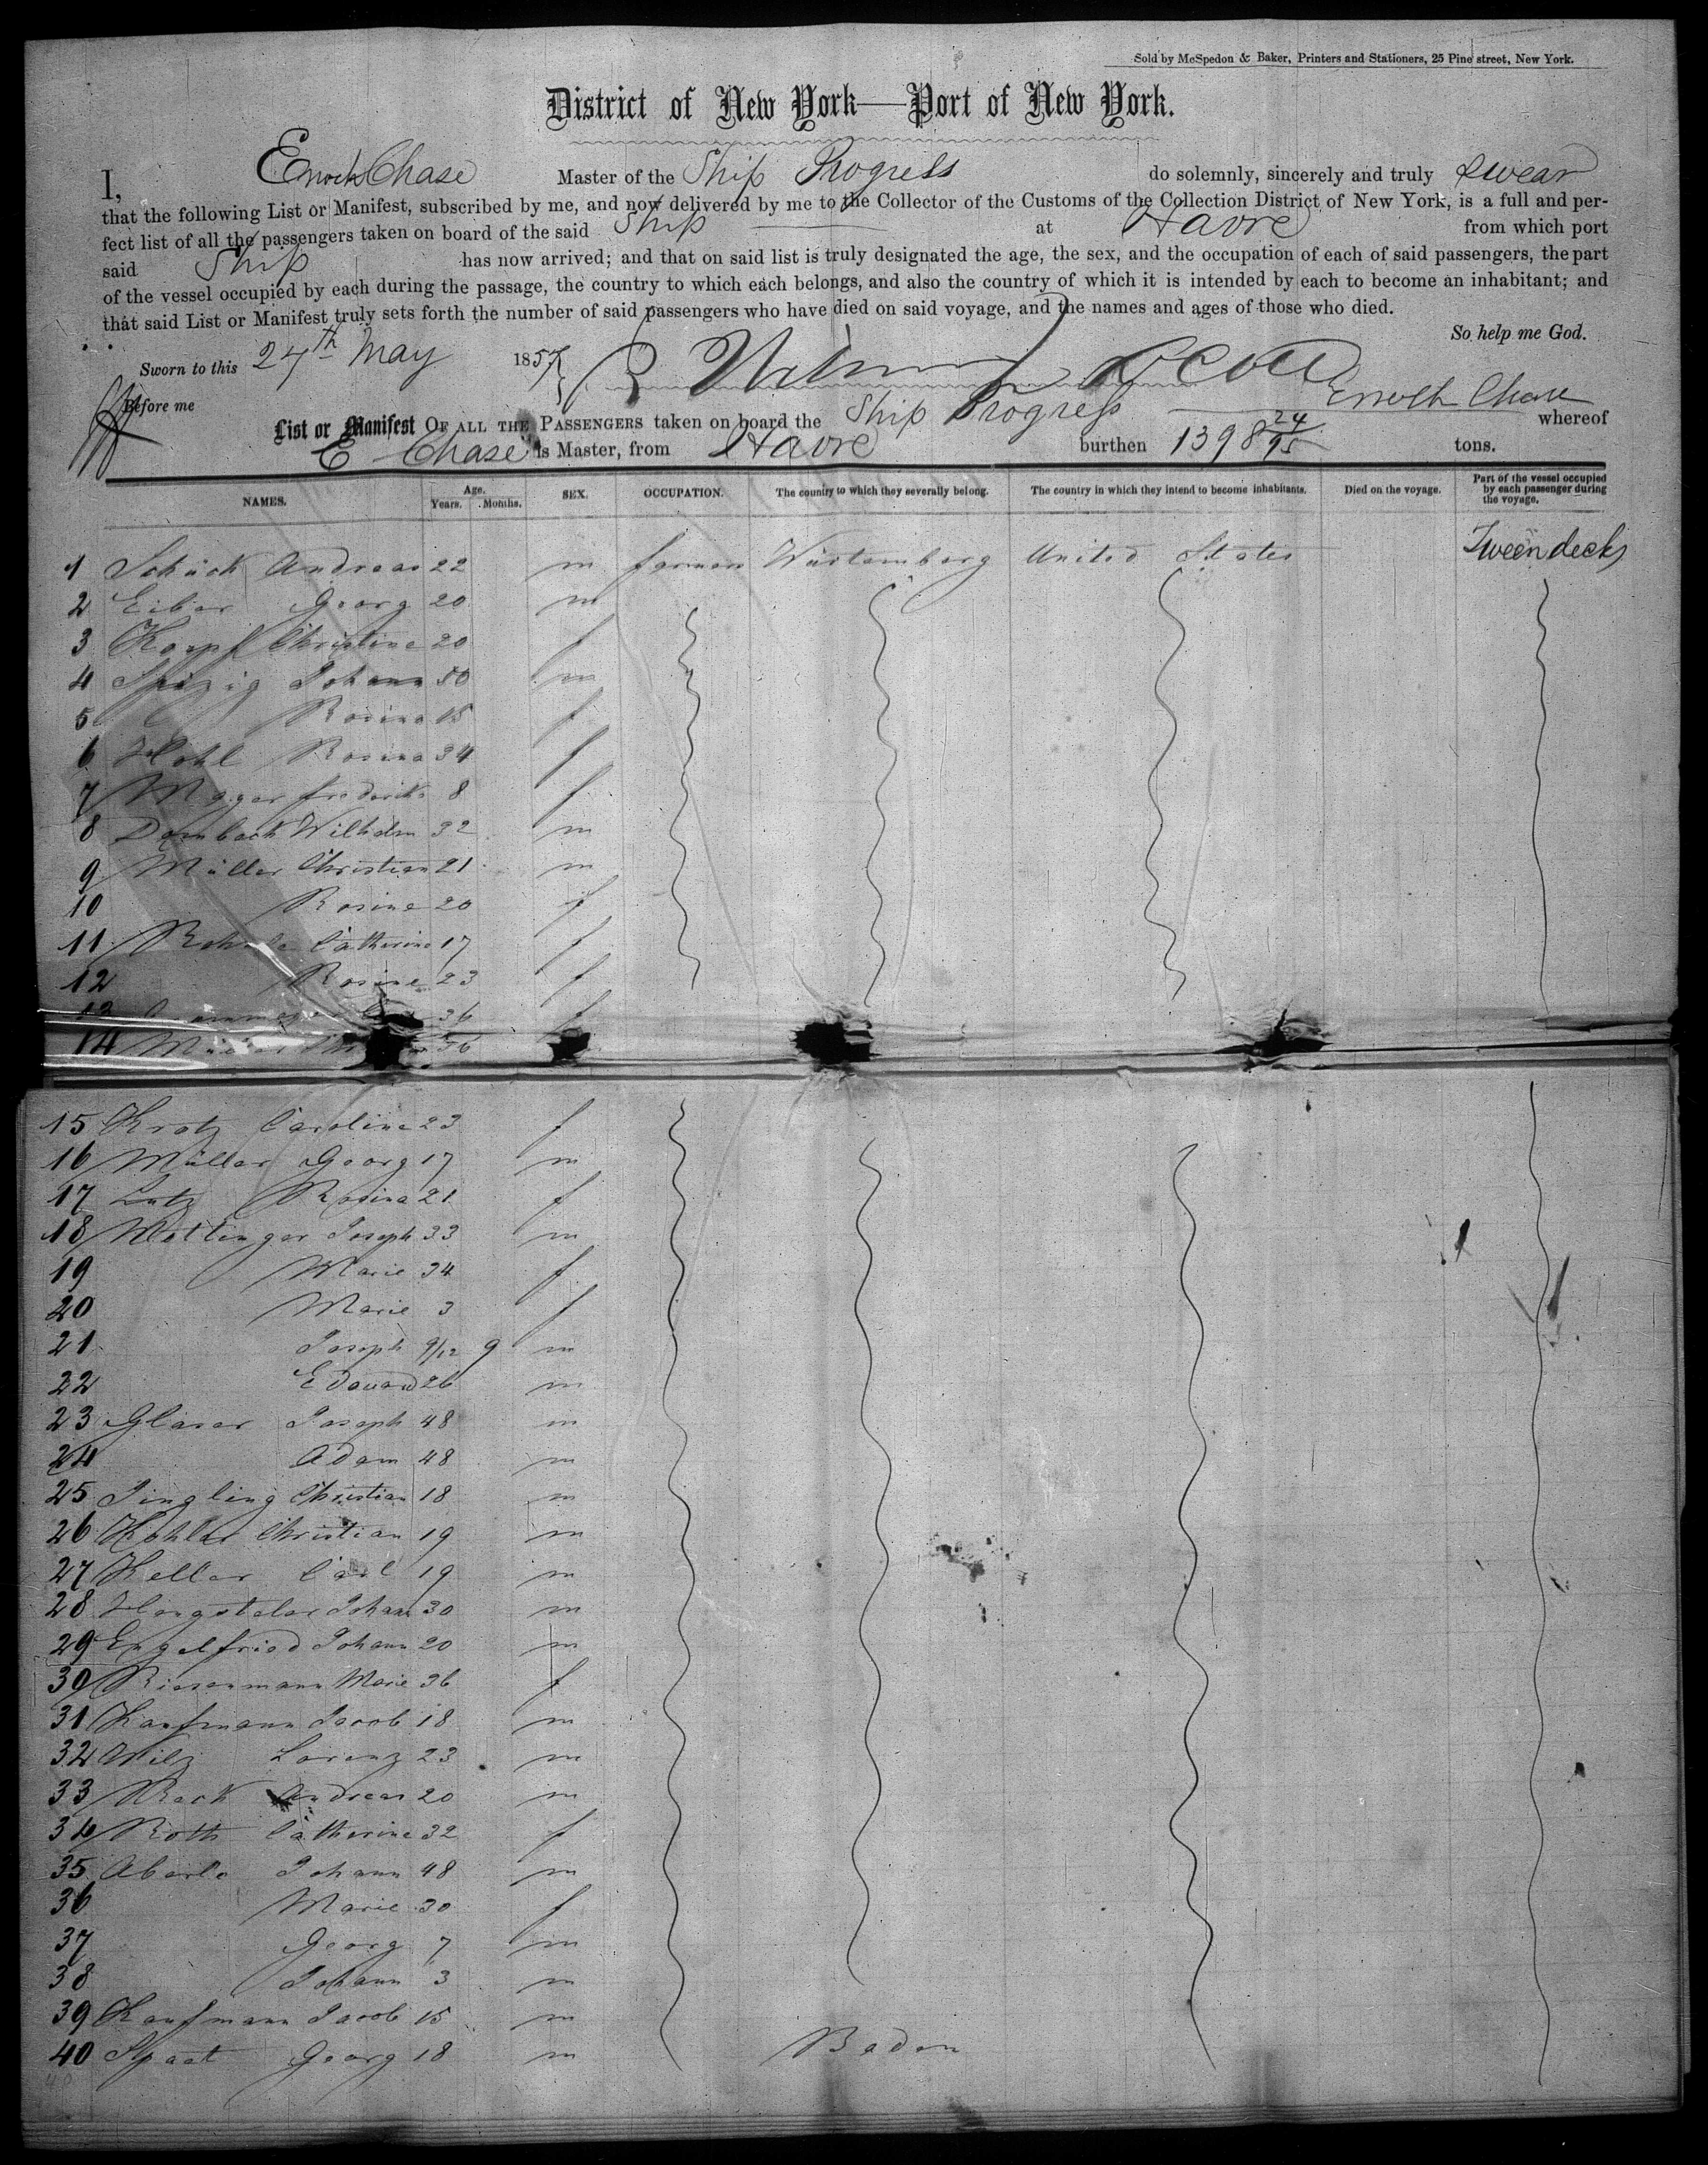 Sold by McSpedon & Baker, Printers and Stationers, 25 Pine street, New York.
District of New York—Port of New York.
I, Enoch Chase Master of the Ship Progress do solemnly, sincerely and truly swear
that the following List or Manifest, subscribed by me, and now delivered by me to the Collector of the Customs of the Collection District of New York, is a full and per-
fect list of all the passengers taken on board of the said Ship at Havre from which port
said Ship has now arrived; and that on said list is truly designated the age, the sex, and the occupation of each of said passengers, the part
of the vessel occupied by each during the passage, the country to which each belongs, and also the country of which it is intended by each to become an inhabitant; and
that said List or Manifest truly sets forth the number of said passengers who have died on said voyage, and the names and ages of those who died.
So help me God.
Sworn to this 27th May 1857
Before me Enoch Chase
List or Manifest OF ALL THE PASSENGERS taken on board the Ship Progress whereof
E Chase is Master, from Havre burthen 1398 24/95 tons.
NAMES. Age. Years. Months. SEX. OCCUPATION. The country to which they severally belong. The country in which they intend to become inhabitants. Died on the voyage. Part of the vessel occupied by each passenger during the voyage.
1 Schück Andreas 22 m farmers Würtemberg United States Tween decks
2 Eiber Georg 20 m
3 Kopf Christine 20 f
4 Johann 50 m
5 Rosina 15 f
6 Hohl Rosina 34 f
7 frederike 8 f
8 Dambach Wilhelm 32 m
9 Müller Christian 21 m
10 Rosine 20 f
11 Catherine 17 f
12 Rosine 23 f
13 36 f
14 56
15 Kratz Caroline 23 f
16 Müller Georg 17 m
17 Lutz Rosina 21 f
18 Mettinger Joseph 33 m
19 Marie 34 f
20 Marie 3 f
21 Joseph 9/12 9 m
22 Edouard 26 m
23 Glaser Joseph 48 m
24 Adam 48 m
25 Jingling Christian 18 m
26 Kohler Christian 19 m
27 Keller Carl 19 m
28 Hengsteler Johann 30 m
29 Engelfried Johann 20 m
30 Riesenmann Marie 36 f
31 Kaufmann Jacob 18 m
32 Wilz Lorenz 23 m
33 Beck Andreas 20 m
34 Roth Catherine 32 f
35 Aberle Johann 48 m
36 Marie 30 f
37 Georg 7 m
38 Johann 3 m
39 Kaufmann Jacob 15 m
40 Spaet Georg 18 m Baden